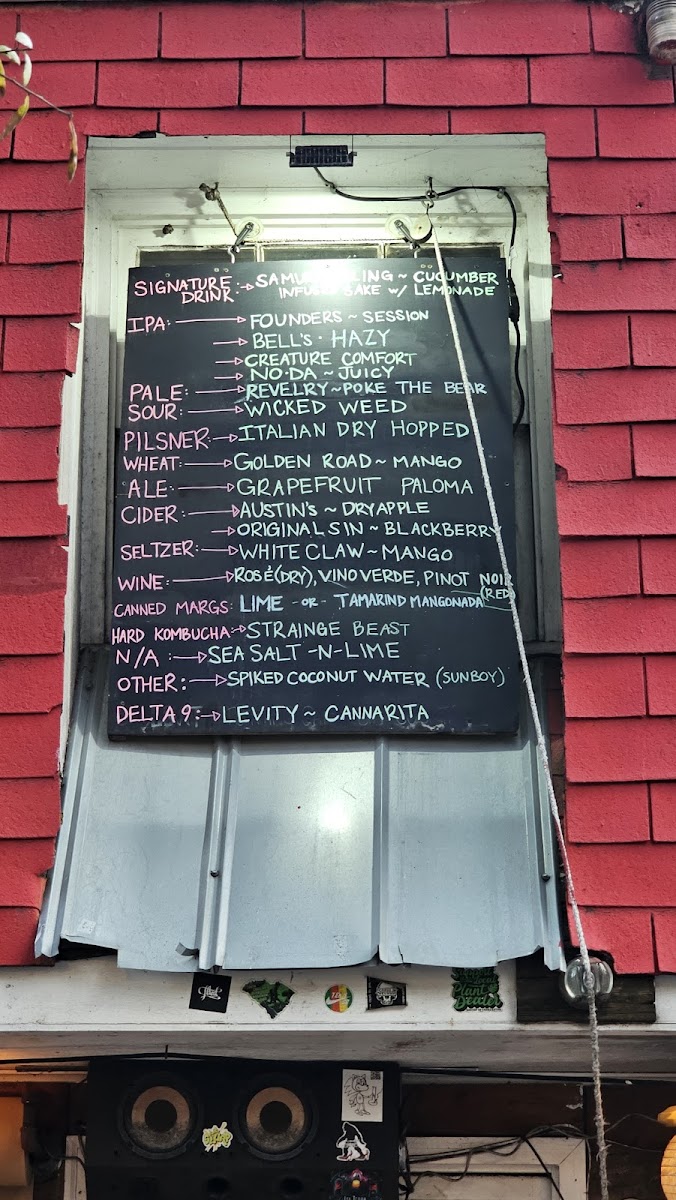 SIGNATURE DRINK: → SAMU LING ~ CUCUMBER
INFUSED SAKE W/ LEMONADE
IPA: → FOUNDERS ~ SESSION
→ BELL'S · HAZY
→ CREATURE COMFORT
→ NO·DA ~ JUICY
PALE: → REVELRY ~ POKE THE BEAR
SOUR: → WICKED WEED
PILSNER: → ITALIAN DRY HOPPED
WHEAT: → GOLDEN ROAD ~ MANGO
ALE: → GRAPEFRUIT PALOMA
CIDER: → AUSTIN'S ~ DRY APPLE
→ ORIGINAL SIN ~ BLACKBERRY
SELTZER: → WHITE CLAW ~ MANGO
WINE: → ROSÉ (DRY), VINO VERDE, PINOT NOIR
(RED)
CANNED MARGS: LIME - OR - TAMARIND MANGONADA
HARD KOMBUCHA: → STRAINGE BEAST
N/A: → SEA SALT -N- LIME
OTHER: → SPIKED COCONUT WATER (SUNBOY)
DELTA 9: → LEVITY ~ CANNARITA
Plant
Dealer